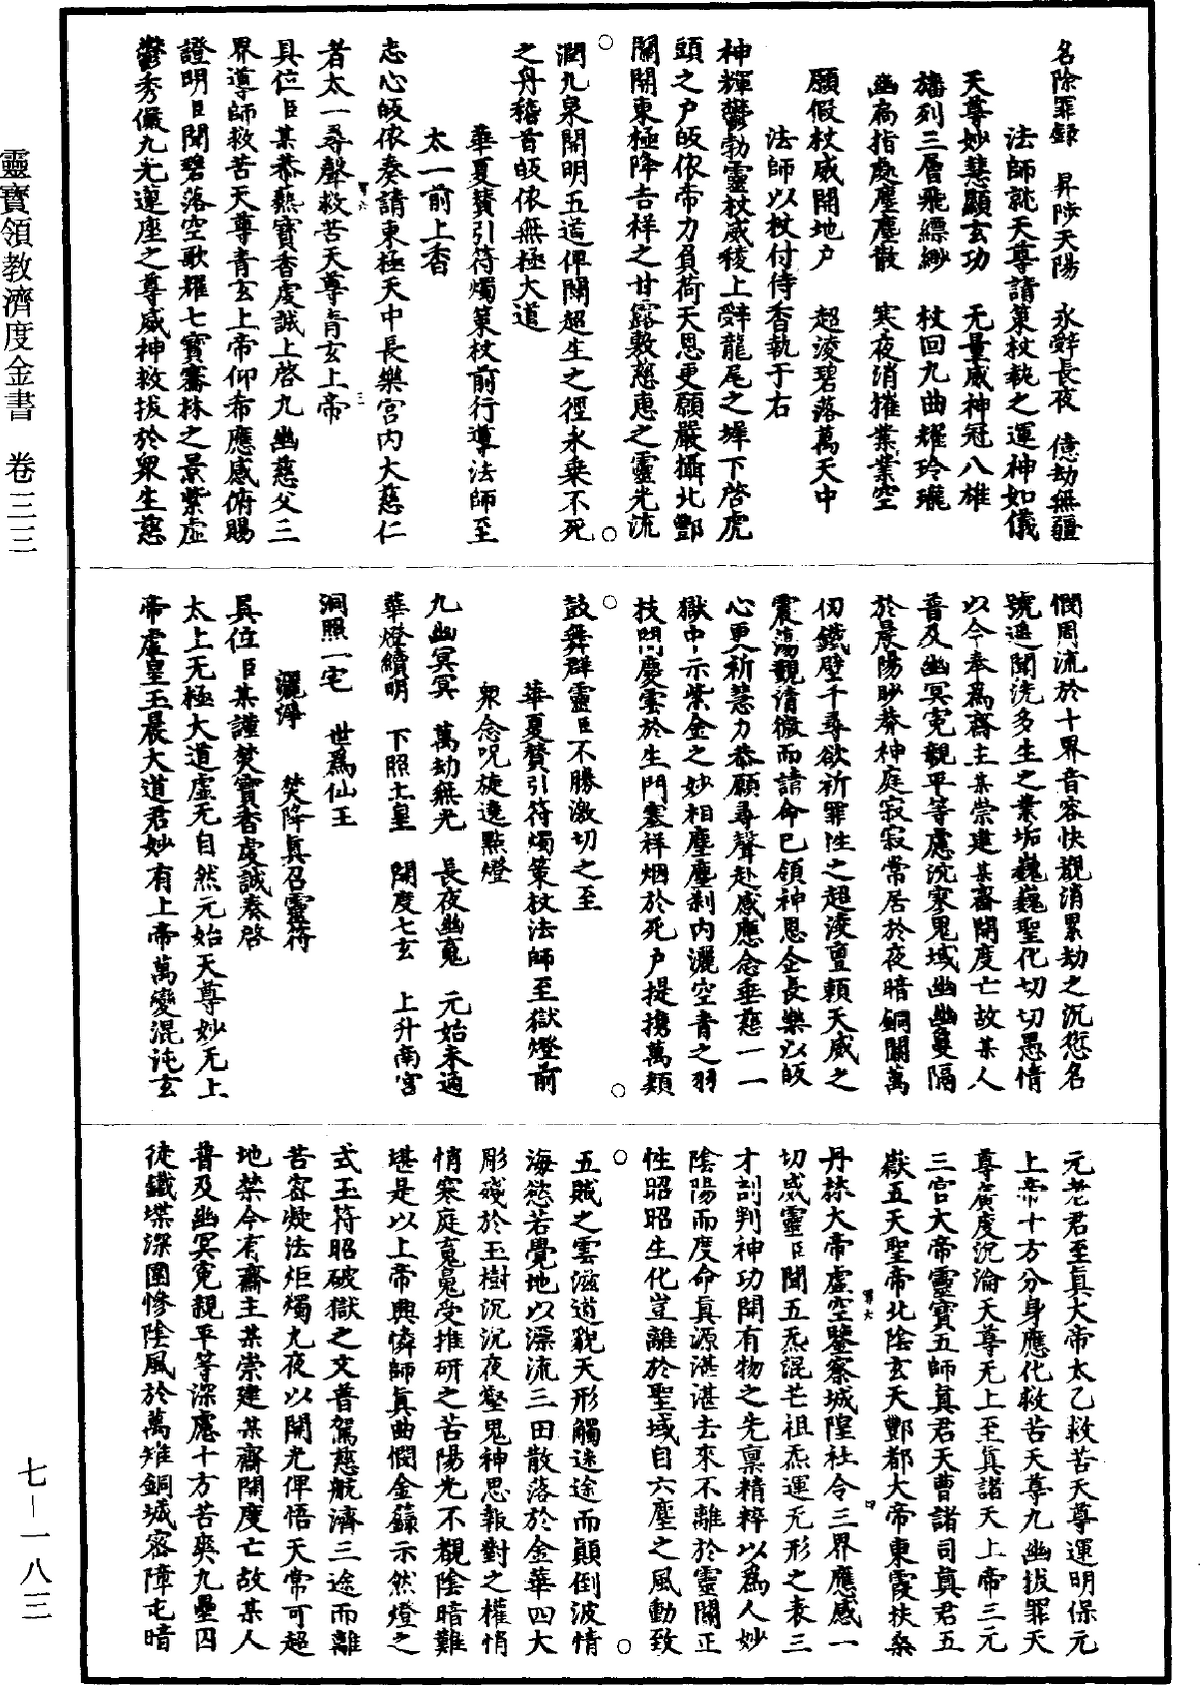 名除罪錄　昇陟天陽　永辭長夜　億劫無疆
法師就天尊請策杖執之運神如儀
天尊妙慧顯玄功　无量威神冠八雄
旛列三層飛縹緲　杖回九曲耀玲瓏
幽扃指處塵塵散　寒夜消摧業業空
願假杖威開地戶　超淩碧落萬天中
法師以杖付侍香執于右
神輝鬱勃靈杖威稜上辭龍尾之墀下啓虎
頭之戶皈依帝力負荷天恩更願嚴攝北酆
關開東極降吉祥之甘露敷慈惠之靈光流
潤九泉開明五道俾闢超生之徑永乘不死
之舟稽首皈依無極大道
華夏贊引符燭策杖前行導法師至
太一前上香
志心皈依奏請東極天中長樂宮內大慈仁
者太一尋聲救苦天尊青玄上帝
具位臣某恭爇寶香虔誠上啓九幽慈父三
界導師救苦天尊青玄上帝仰希應感俯賜
證明臣聞碧落空歌耀七寶騫林之景紫虛
鬱秀儼九光蓮座之尊威神救拔於衆生慈
憫周流於十界音容快覩消累劫之沉愆名
號遥聞洗多生之業垢巍巍聖化切切愚情
以今奉爲齋主某崇建某齋開度亡故某人
普及幽冥寃親平等慮沉寒鬼域幽幽敻隔
於晨陽眇莽神庭寂寂常居於夜暗銅關萬
仞鐵壁千尋欲祈罪性之超淩亶賴天威之
震蕩覩清微而請命已領神恩企長樂以皈
心更祈慧力恭願尋聲赴感應念垂慈一一
獄中示紫金之妙相塵塵刹內灑空青之羽
技閉慶雲於生門塞祥烟於死戶提擕萬類
鼓舞群靈臣不勝激切之至
華夏贊引符燭策杖法師至獄燈前
衆念呪旋遶點燈
九幽冥冥　萬劫無光　長夜幽寃　元始來過
華燈續明　下照土皇　開度七玄　上升南宮
洞照一宅　世爲仙王
灑淨　焚降真召靈符
具位臣某謹焚寶香虔誠奏啓
太上无極大道虛无自然元始天尊妙无上
帝虛皇玉晨大道君妙有上帝萬變混沌玄
元老君至真大帝太乙救苦天尊運明保元
上帝十方分身應化救苦天尊九幽拔罪天
尊廣度沉淪天尊无上至真諸天上帝三元
三官大帝靈寶五師真君天曹諸司真君五
嶽五天聖帝北陰玄天酆都大帝東霞扶桑
丹林大帝虛空鑒察城隍社令三界應感一
切威靈臣聞五炁混茫祖炁運无形之表三
才剖判神功開有物之先稟精粹以爲人妙
陰陽而度命真源湛湛去來不離於靈關正
性昭昭生化豈離於聖域自六塵之風動致
五賊之雲滋道貌天形觸迷途而顛倒波情
海慾若覺地以漂流三田散落於金華四大
彫殘於玉樹沉沉夜壑鬼神思報對之權悄
悄寒庭寃鬼受推研之苦陽光不覩陰暗難
堪是以上帝興憐師真曲憫金籙示然燈之
式玉符昭破獄之文普駕慈航濟三途而離
苦密凝法炬燭九夜以開光俾悟天常可超
地禁今有齋主某崇建某齋開度亡故某人
普及幽冥寃親平等深慮十方苦爽九壘囚
徒鐵堞深圍慘陰風於萬雉銅城密障屯暗
靈寶領教濟度金書　卷三三
七—一八三